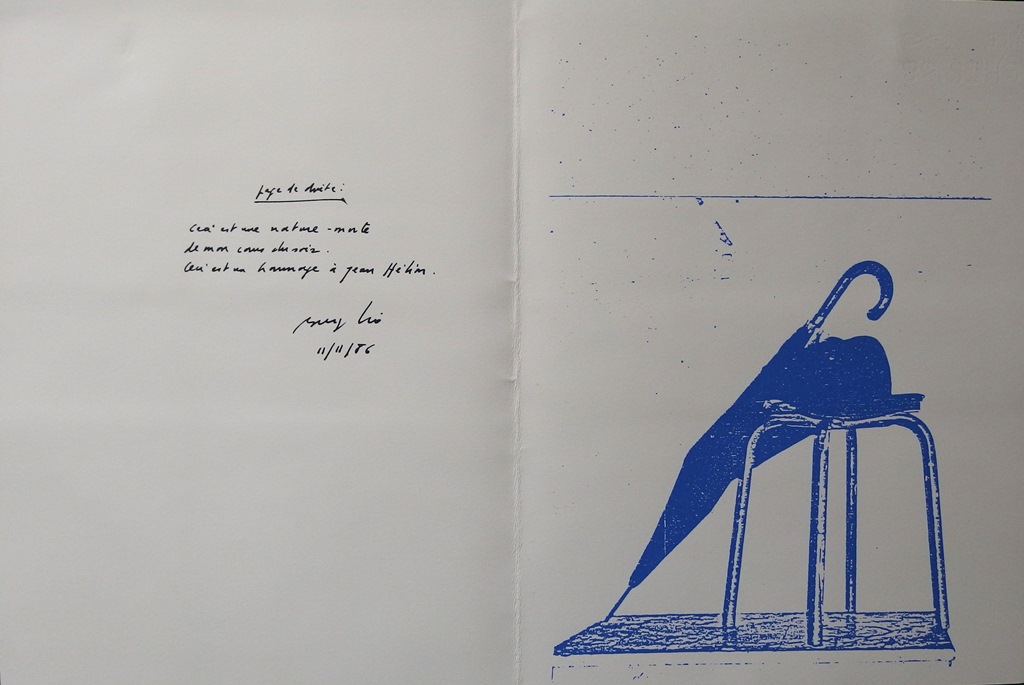 page de droite :
Ceci est une nature-morte
de mon cours du soir.
Ceci est un hommage à Jean Hélion.
11/11/86